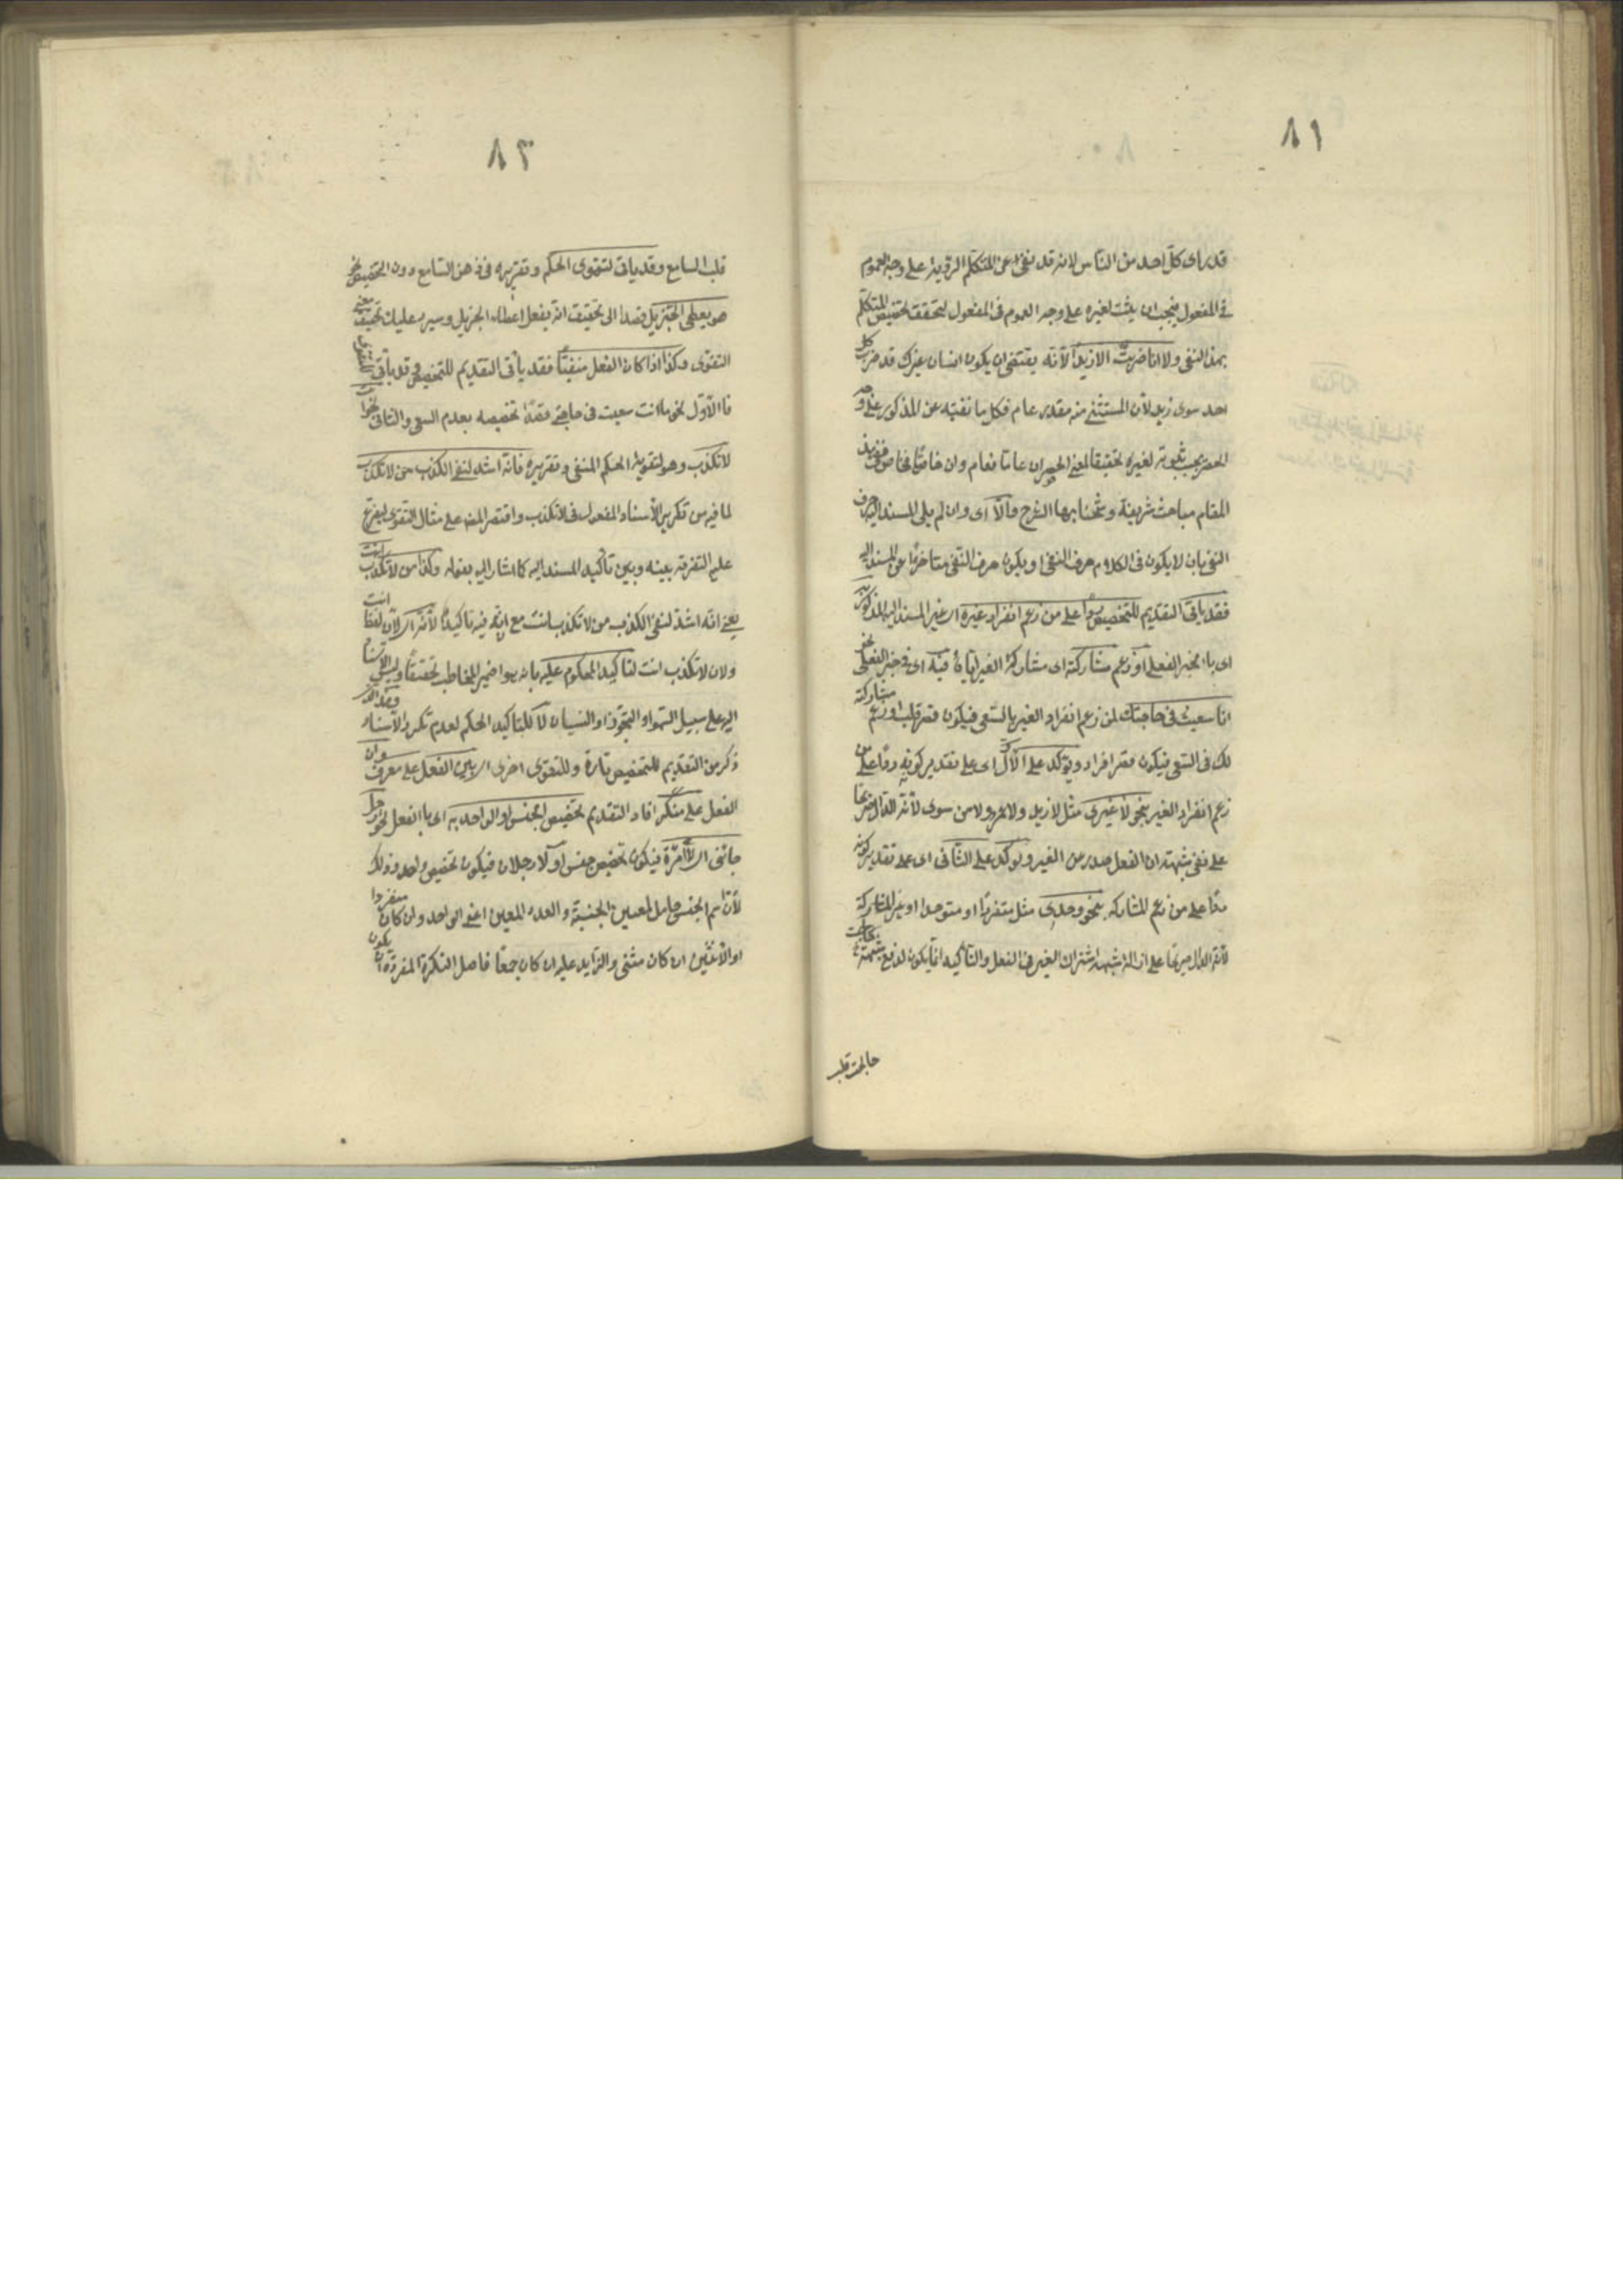 ٨١
قد راى كل احد من الناس لانه قد نفى عن المتكلم الرؤية على وجه العموم
فى المفعول فيجب ان يثبت لغيره على وجه العموم فى المفعول ليتحقق تخصيص المتكلم
بهذا النفى ولا انا ضربت الا زيدا لانه يقتضى ان يكون انسان غيرك قد ضرب كل
احد سوى زيد لان المستثنى منه مقدر عام فكل ما نفيته عن المذكور على وجه
الحصر يجب ثبوته لغيره تحقيقا لمعنى الحصر ان عاما فعام وان خاصا فخاص وفى هذا
المقام مباحث شريفة وشحنا بها الشرح والا اى وان لم يلى المسند اليه حرف
النفى بان لا يكون فى الكلام حرف النفى او يكون حرف النفى متاخرا عن المسند اليه
فقد ياتى التقديم للتخصيص ردا على من زعم انفراد غيره اى غير المسند اليه المذكور به
اى بالخبر الفعلى او زعم مشاركته اى مشاركة الغير اياه فيه اى فى خبر الفعلى نحو
انا سعيت فى حاجتك لمن زعم انفراد الغير بالسعى فيكون قصر قلب او زعم مشاركته
لك فى السعى فيكون قصر افراد ويؤكد على الاول اى على تقدير كونه ردا على من
زعم انفراد الغير بنحو لا غيرى مثل لا زيد ولا عمرو ولا من سوى لانه الدال صريحا
على نفى شبهة ان الفعل صدر من الغير ويؤكد على الثانى اى على تقدير كونه
ردا على من زعم المشاركة بنحو وحدى مثل متفردا او متوحدا او غير المشاركة
لانه الدال صريحا على ازالة شبهة اشتراك الغير فى الفعل والتأكيد انما يكون لدفع شبهة
قلب
٨٢
قلب السامع وقد ياتى لتقوى الحكم وتقريره فى ذهن السامع دون التخصيص نحو
هو يعطى الجزيل قصدا الى تحقيق انه يفعل اعطاء الجزيل وسيرد عليك تحقيق معنى
التقوى وكذا اذا كان الفعل منفيا فقد يأتى التقديم للتخصيص وقد يأتى للتقوى
فالاول نحو انت ما سعيت فى حاجتى قصدا تخصيصه بعدم السعى والثانى نحو انت
لا تكذب وهو لتقوية الحكم المنفى وتقريره فانه اشد لنفى الكذب من لا تكذب
لما فيه من تكرير الاسناد المفقود فى لا تكذب واقتصر المص على مثال التقوى ليفرع
عليه التفرقة بينه وبين تأكيد المسند اليه كما اشار اليه بقوله وكذا من لا تكذب انت
يعنى انه اشد لنفى الكذب من لا تكذب انت مع انه فيه تاكيدا لانه اى لان لفظ انت
ولان لا تكذب انت لتاكيد المحكوم عليه بانه هو ضمير المخاطب تحقيقا وليس الاسناد
اليه على سبيل السهو او التجوز او النسيان لا لتاكيد الحكم لعدم تكرر الاسناد
ذكر من التقديم للتخصيص تارة وللتقوى اخرى ان بنى الفعل على معرف وان بنى
الفعل على منكر افاد التقديم تخصيص الجنس او الواحد به اى بالفعل نحو رجل
جاءنى اى لا امرأة فيكون تخصيص جنس او لا رجلان فيكون تخصيص واحد وذلك
لان اسم الجنس حامل لمعنيين الجنسية والعدد المعين اعنى الواحد ان كان منفردا
او الاثنين ان كان مثنى والزايد عليه ان كان جمعا فاصل النكرة المفردة ان يكون